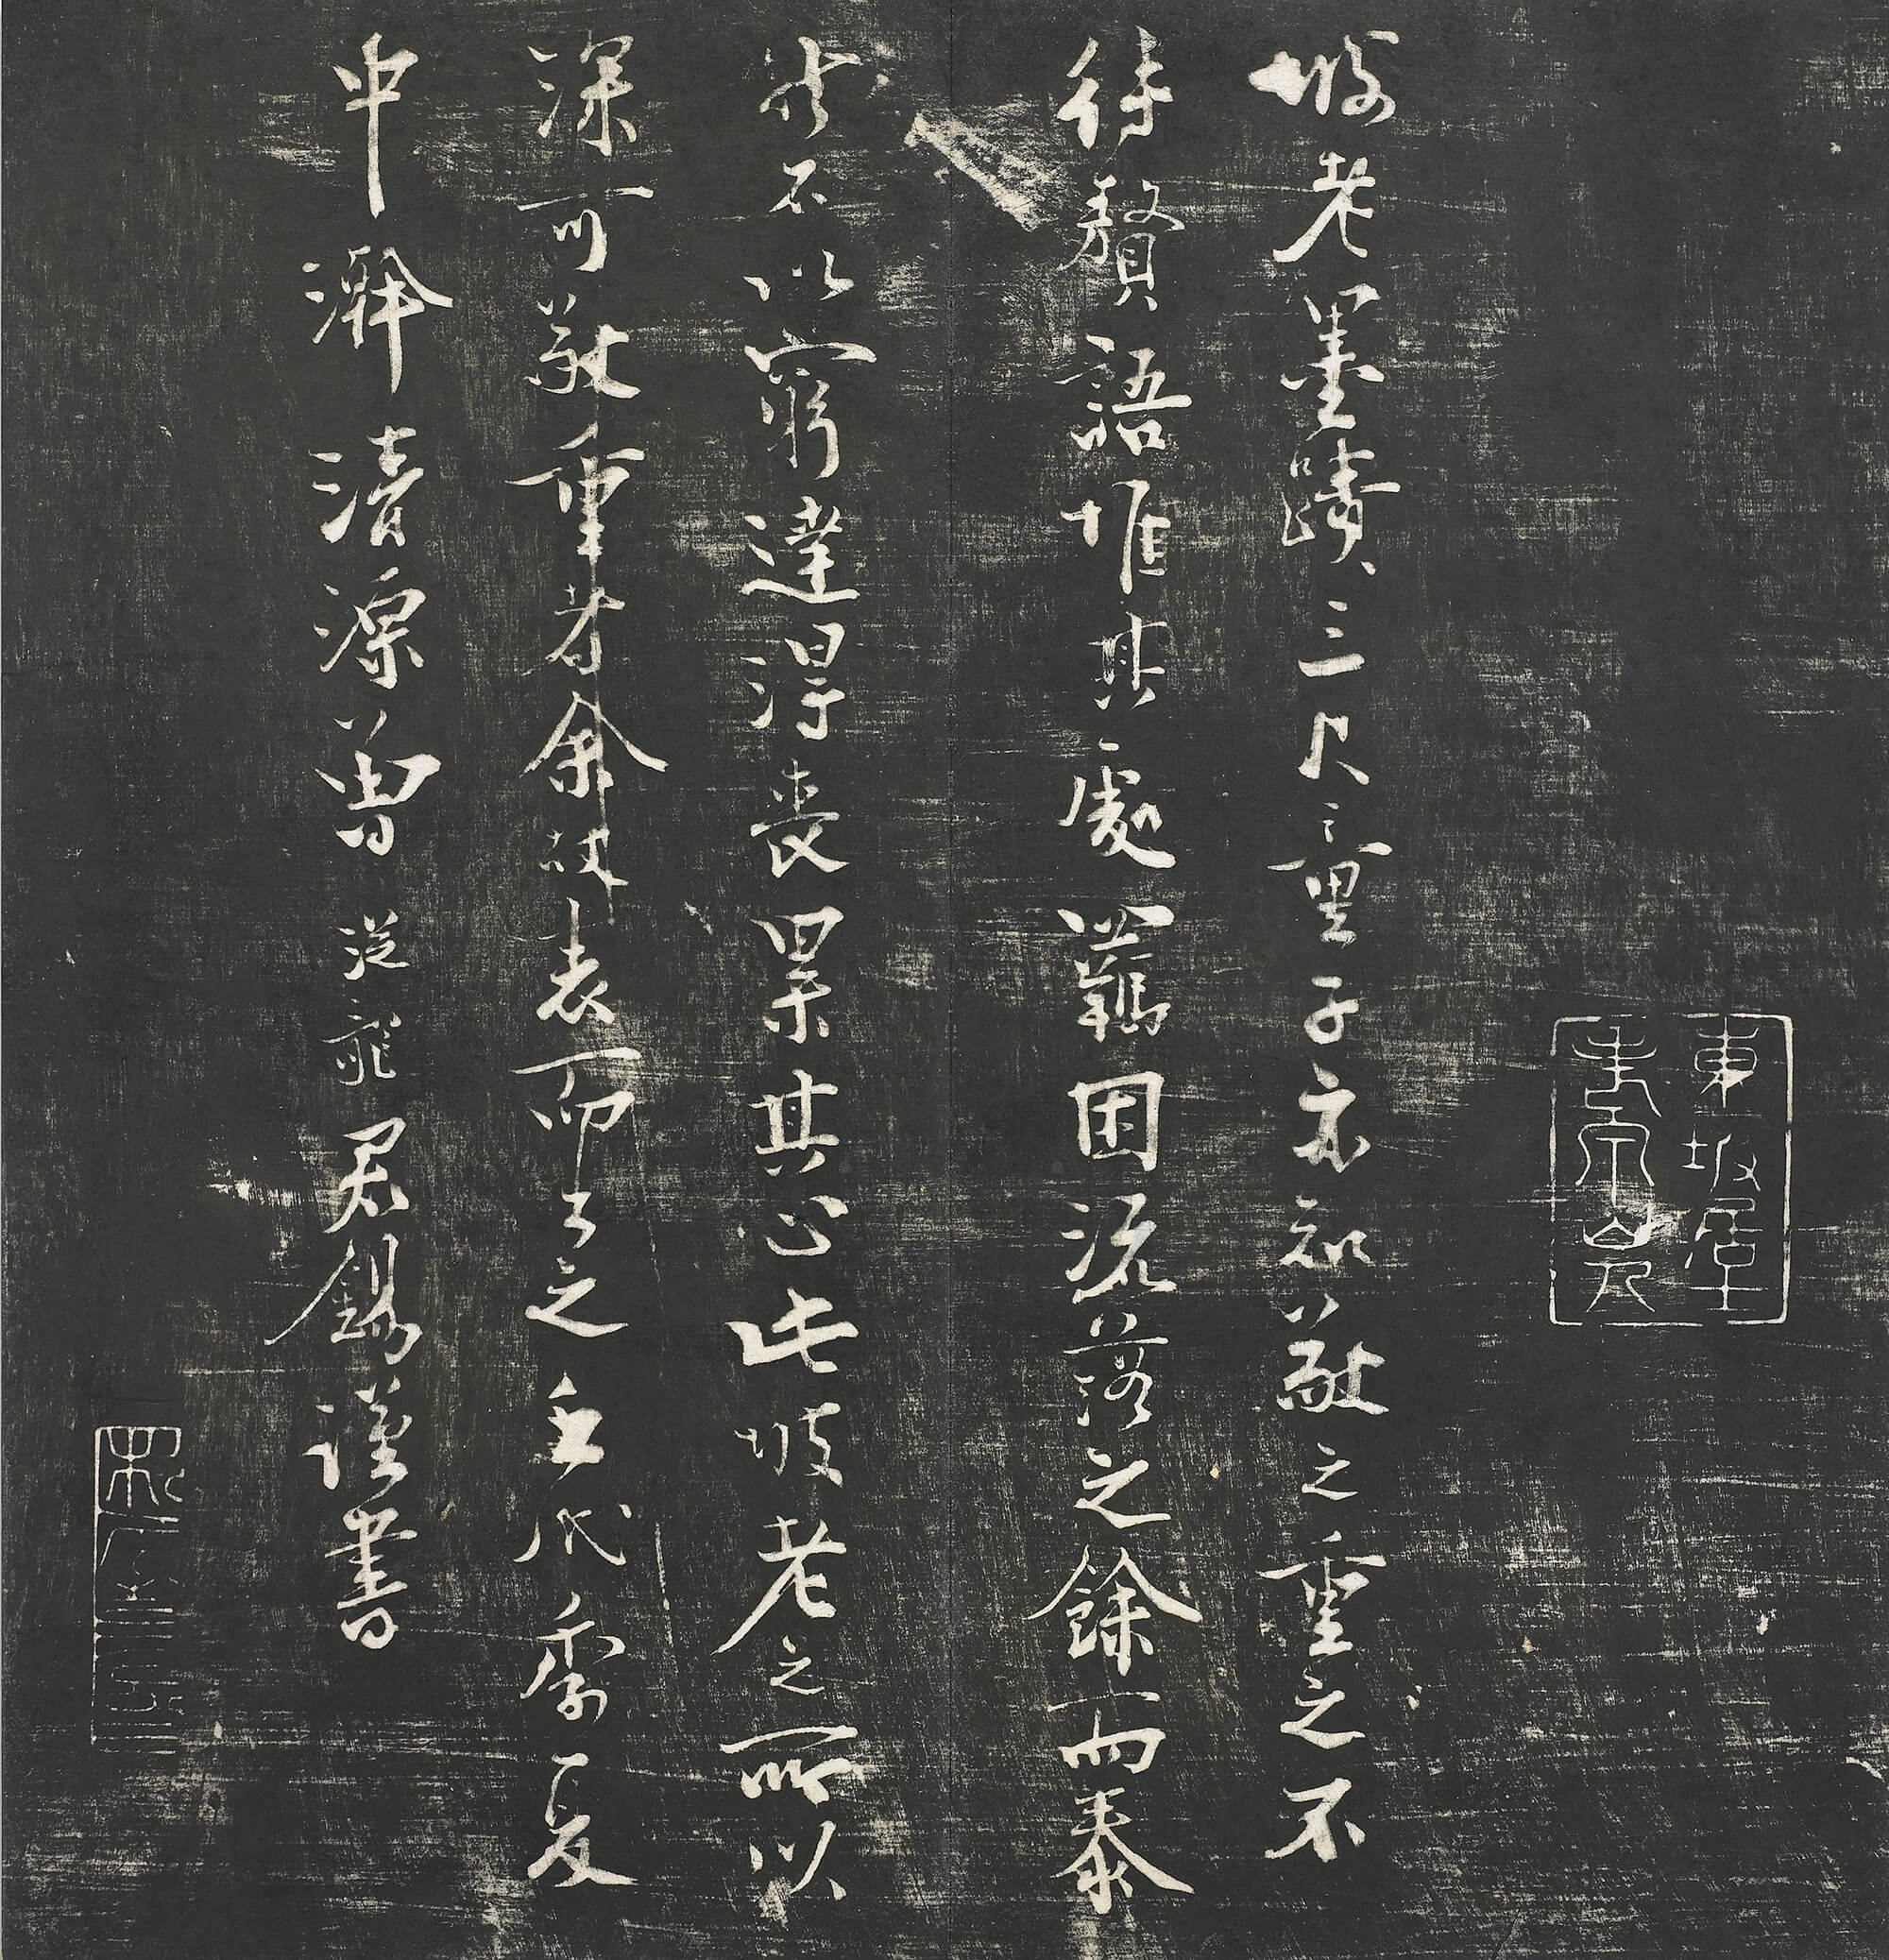 東坡居士
老泉山人
坡老墨蹟三尺之童子亦知敬之重之不
待贅語惟其處羈困流落之餘而泰
然不以窮達得喪累其心此坡老之所以
深可敬重者余故表而出之壬戌季夏
中澣清源曾從龍君錫謹書